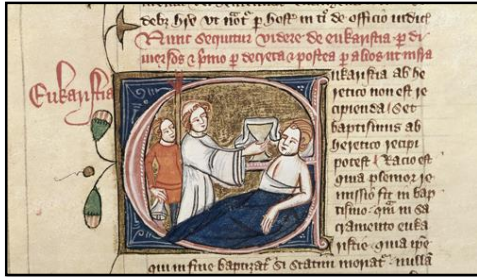 debȝ hře vt nōt p host in ti de officio iudic
Nunc sequitur videre de eukaristia p di
uersos & primo p decreta & postea p alios ut infra
Eukaristia
ukaristia ab he
retico non est re
cipienda / Set
baptismus ab
heretico recipi
potest / Racio est
quia plenior re
missio fit in bap
tismo qm in sa
cramento euka
ristie quia ipe
qui in fine baptizat si statim morat nulla